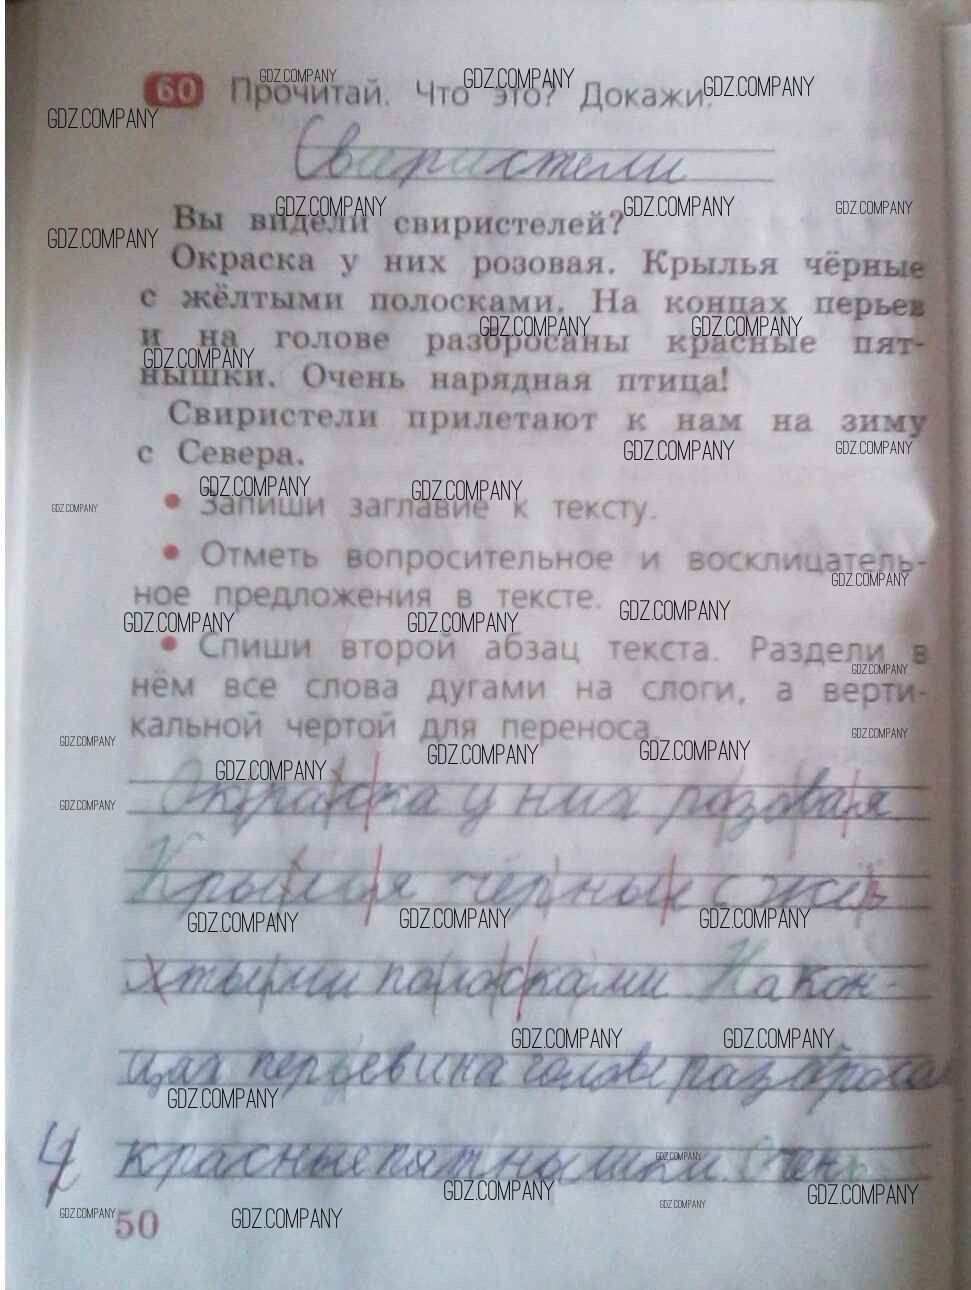 60 Прочитай. Что это? Докажи.
Свиристели
Вы видели свиристелей?
Окраска у них розовая. Крылья чёрные
с жёлтыми полосками. На концах перьев
и на голове разбросаны красные пят-
нышки. Очень нарядная птица!
Свиристели прилетают к нам на зиму
с Севера.
• Запиши заглавие к тексту.
• Отметь вопросительное и восклицатель-
ное предложения в тексте.
• Спиши второй абзац текста. Раздели в
нём все слова дугами на слоги, а верти-
кальной чертой для переноса.
Окраска у них розовая
Крылья чёрные с
тыми полосками На кон-
цах перьев и на голове
красные пятнышки. Очень
4
50
GDZ.COMPANY